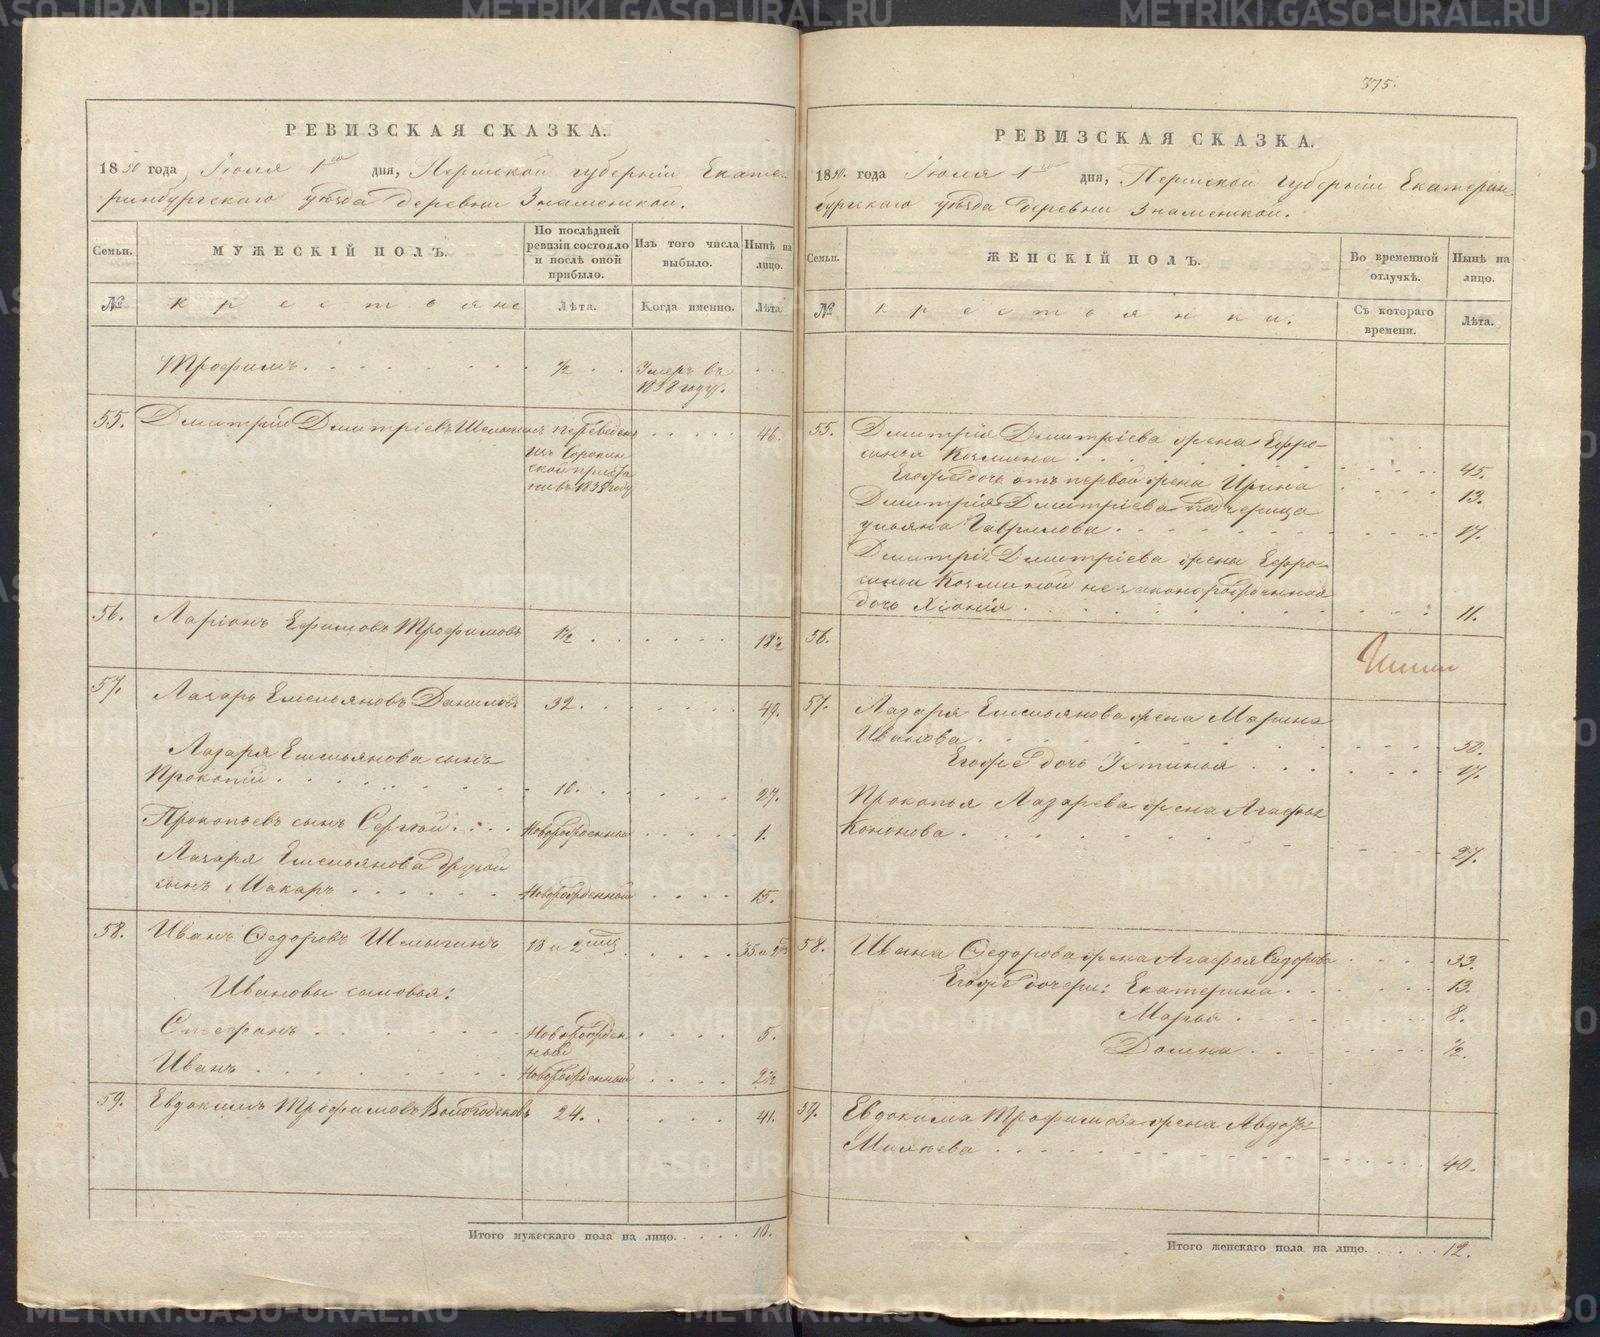 375.
РЕВИЗСКАЯ СКАЗКА.
1850 года Іюля 1го дня, Пермской губерніи Екате-
ринбургскаго уѣзда деревни Знаменской.
Семьи.
МУЖЕСКІЙ ПОЛЪ.
По послѣдней
ревизіи состояло
и послѣ оной
прибыло.
Изъ того числа
выбыло.
Нынѣ на
лицо.
№
крестьяне
Лѣта.
Когда именно.
Лѣта.
Трофимъ ½ Умеръ въ
1838 году.
55. Дмитрій Дмитріевъ переведенъ 46.
изъ Сорокин
ской
въ году
56. Ларіонъ Ефимовъ Трофимовъ 1½ 18½
57. Лазарь Емельяновъ Даниловъ 32. 49.
Лазаря Емельянова сынъ
Прокопій 10. 27.
Прокопьевъ сынъ Сергѣй Новорожденный 1.
Лазаря Емельянова другой
сынъ Макаръ Новорожденный 15.
58. Иванъ Ѳедоровъ Шелыгинъ 18 и 2 мѣс 35 и 2
Ивановы сыновья:
Стефанъ Новорожден 5.
ный
Иванъ Новорожденный 2½
59. Евдокимъ Трофимовъ 24. 41.
Итого мужескаго пола на лицо. 10.
РЕВИЗСКАЯ СКАЗКА.
1850 года Іюля 1го дня, Пермской губерніи Екатерин-
бургскаго уѣзда деревни Знаменской.
Семьи.
ЖЕНСКІЙ ПОЛЪ.
Во временной
отлучкѣ.
Нынѣ на
лицо.
№
крестьянки.
Съ котораго
времени.
Лѣта.
55. Дмитрія Дмитріева жена Ефро-
синья Козмина 45.
Его же дочь отъ первой жены Ирина 13.
Дмитрія Дмитріева падчерица
Ульяна Гаврилова 17.
Дмитрія Дмитріева жены Ефро-
синьи Козминой незаконнорожденная
дочь 11.
56.
57. Лазаря Емельянова жена Марина
Иванова 50.
Его же дочь Устинья 17.
Прокопья Лазарева жена Агафья
Кононова 27.
58. Ивана Ѳедорова жена Агафья Сидорова 33.
Его же дочери: Екатерина 13.
Марья 8.
Домна ½.
59. Евдокима Трофимова жена Авдотья
40.
Итого женскаго пола на лицо. 12.
METRIKI.GASO-URAL.RU